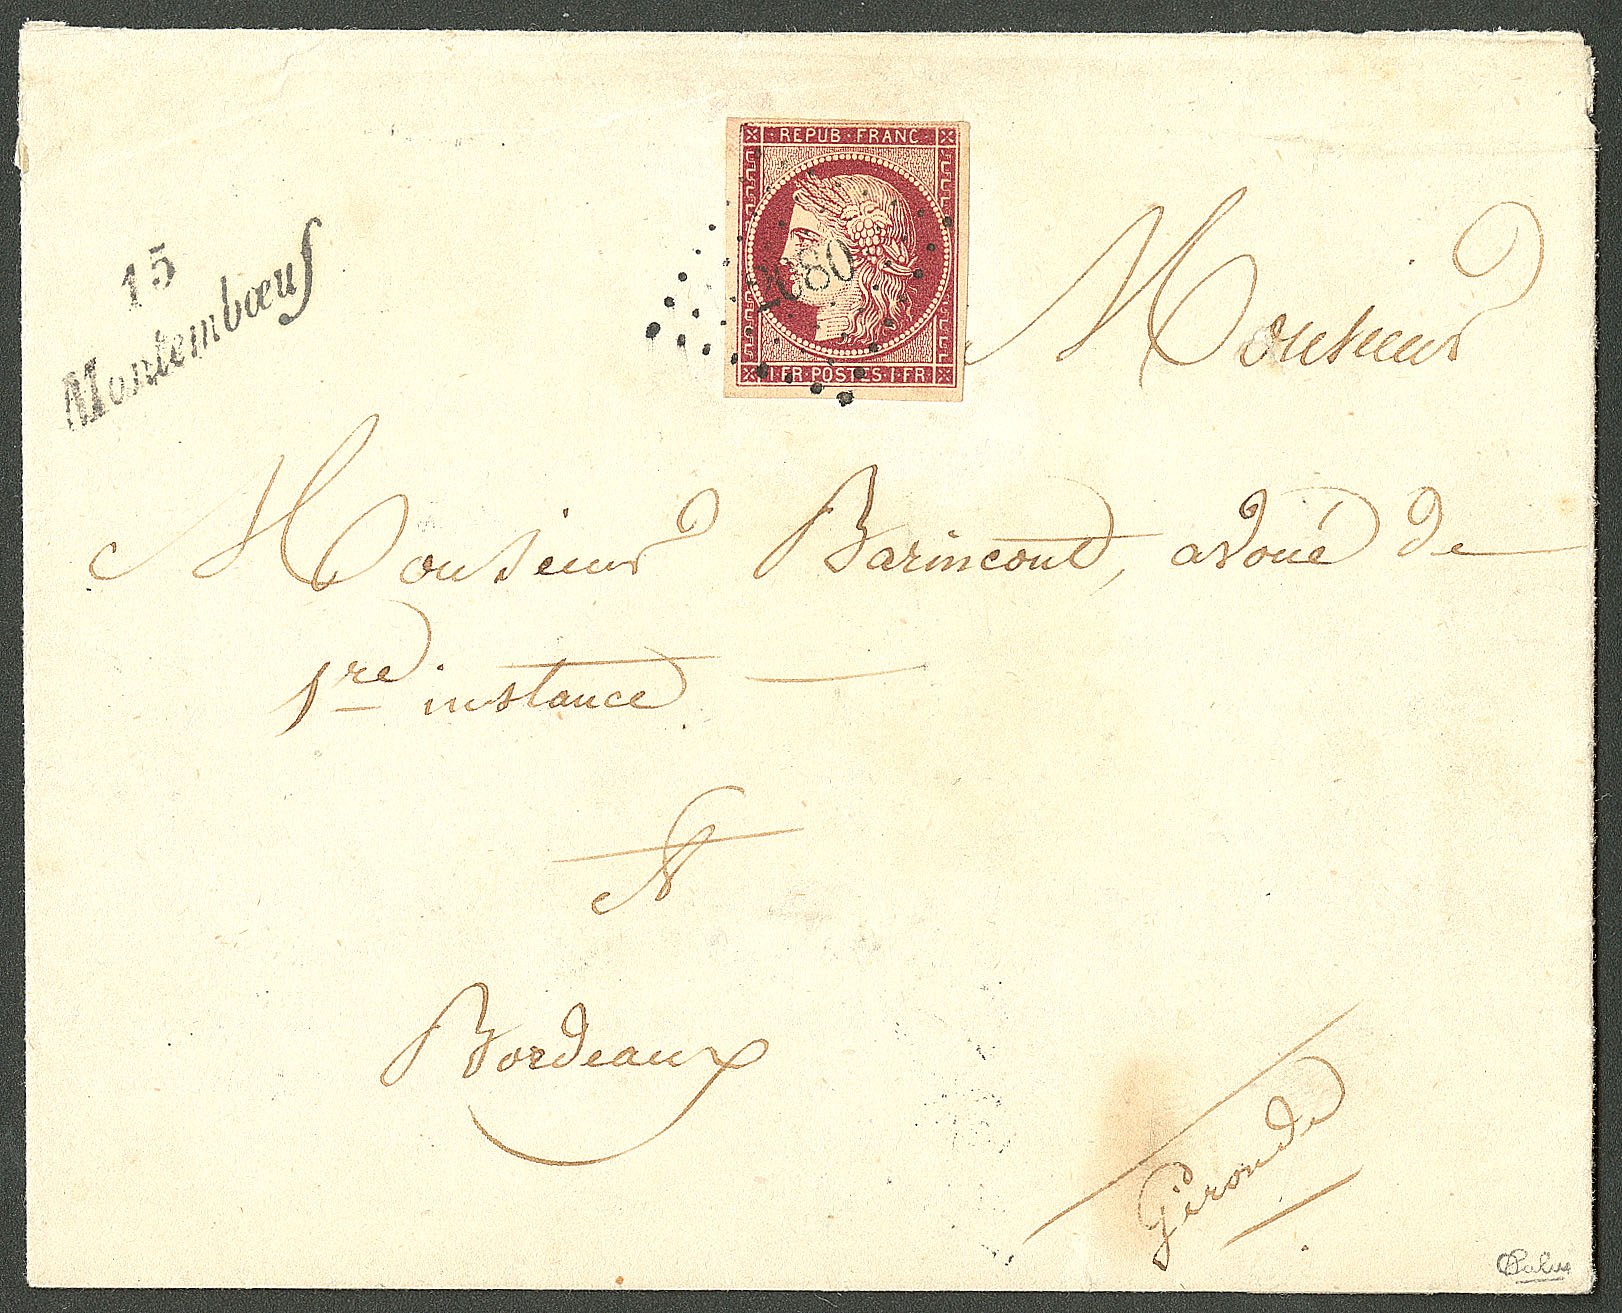 REPUB · FRANC
2080
1 FR · POSTES · 1 FR
15
Montembœuf
Monsieur
Monsieur Barincout, avoué de
1re instance
A
Bordeaux
Gironde